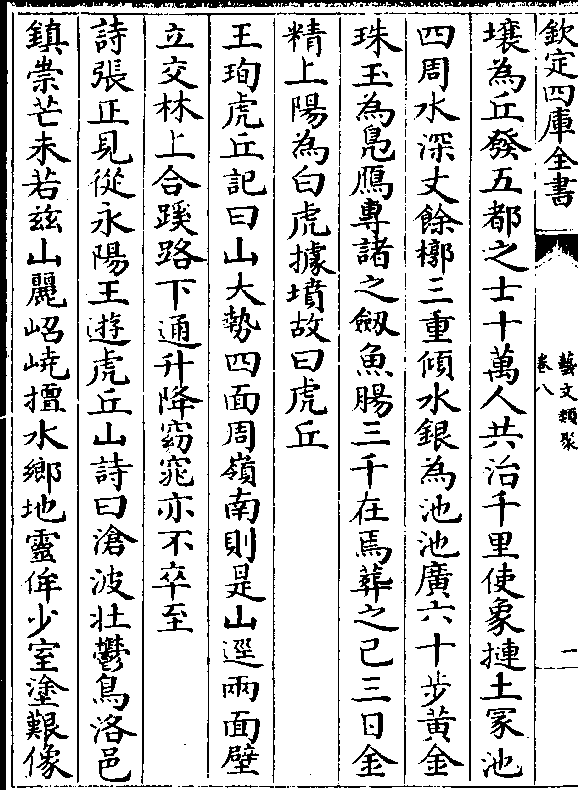 欽定四庫全書
藝文類聚
卷八
一
壤為丘發五都之士十萬人共治千里使象摙土冡池
四周水深丈餘槨三重傾水銀為池池廣六十步黃金
珠玉為鳧鴈專諸之劔魚腸三千在焉葬之已三日金
精上陽為白虎據墳故曰虎丘
王珣虎丘記曰山大勢四面周嶺南則是山逕兩面壁
立交林上合蹊路下通升降窈窕亦不卒至
詩張正見從永陽王遊虎丘山詩曰滄波壯鬱鳥洛邑
鎮崇芒未若兹山麗岧嶢擅水鄉地靈侔少室塗艱像